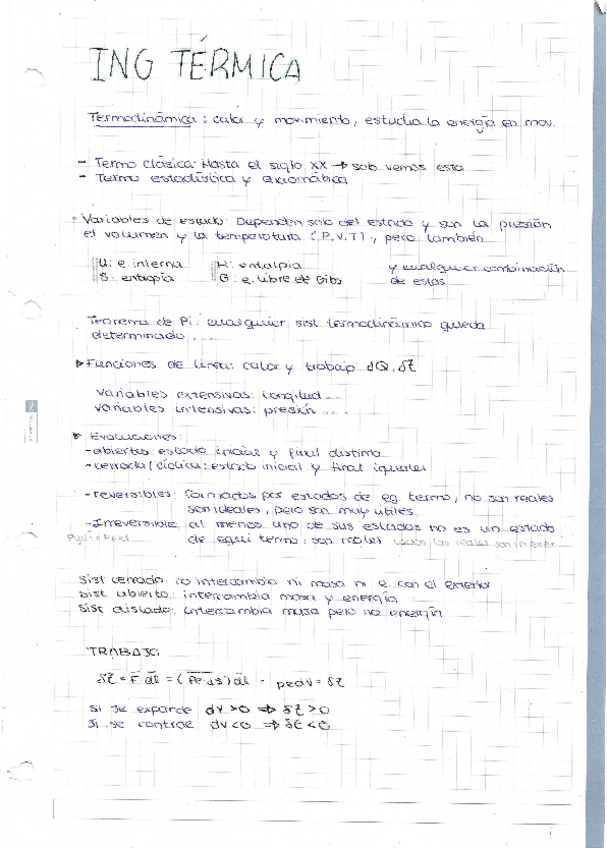 ING TÉRMICA
Termodinámica: calor y movimiento, estudia la energía en mov.
- Termo clásica: Hasta el siglo XX → solo vemos esta
- Termo estadística y axiomática
Variables de estado: Dependen solo del estado y son la presión
el volumen y la temperatura (P,V,T), pero también
U: e. interna H: entalpía y cualquier combinación
S: entropía G: e. libre de Gibs de estas
Teorema de Pi: cualquier sist termodinámico queda
determinado ...
▶ Funciones de línea: calor y trabajo dQ, δτ
Variables extensivas: longitud ...
Variables intensivas: presión ...
▶ Evoluciones:
- abiertas: estado inicial y final distinto
- cerrada/cíclica: estado inicial y final iguales
- reversibles: formados por estados de eq. termo, no son reales
son ideales, pero son muy útiles
- Irreversible: al menos uno de sus estados no es un estado
de equi termo, son reales
Sist cerrado: no intercambia ni masa ni e. con el exterior
Sist abierto: intercambia masa y energía
Sist aislado: intercambia masa pero no energía
TRABAJO:
δτ = F dl = (Pe ds) dl = pedv = δτ
Si se expande dv>0 ⇒ δτ>0
Si se contrae dv<0 ⇒ δτ<0